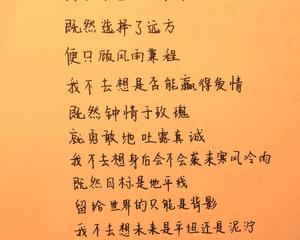 既然选择了远方
便只顾风雨兼程
我不去想是否能赢得爱情
既然钟情于玫瑰
就勇敢地吐露真诚
我不去想身后会不会袭来寒风冷雨
既然目标是地平线
留给世界的只能是背影
我不去想未来是平坦还是泥泞